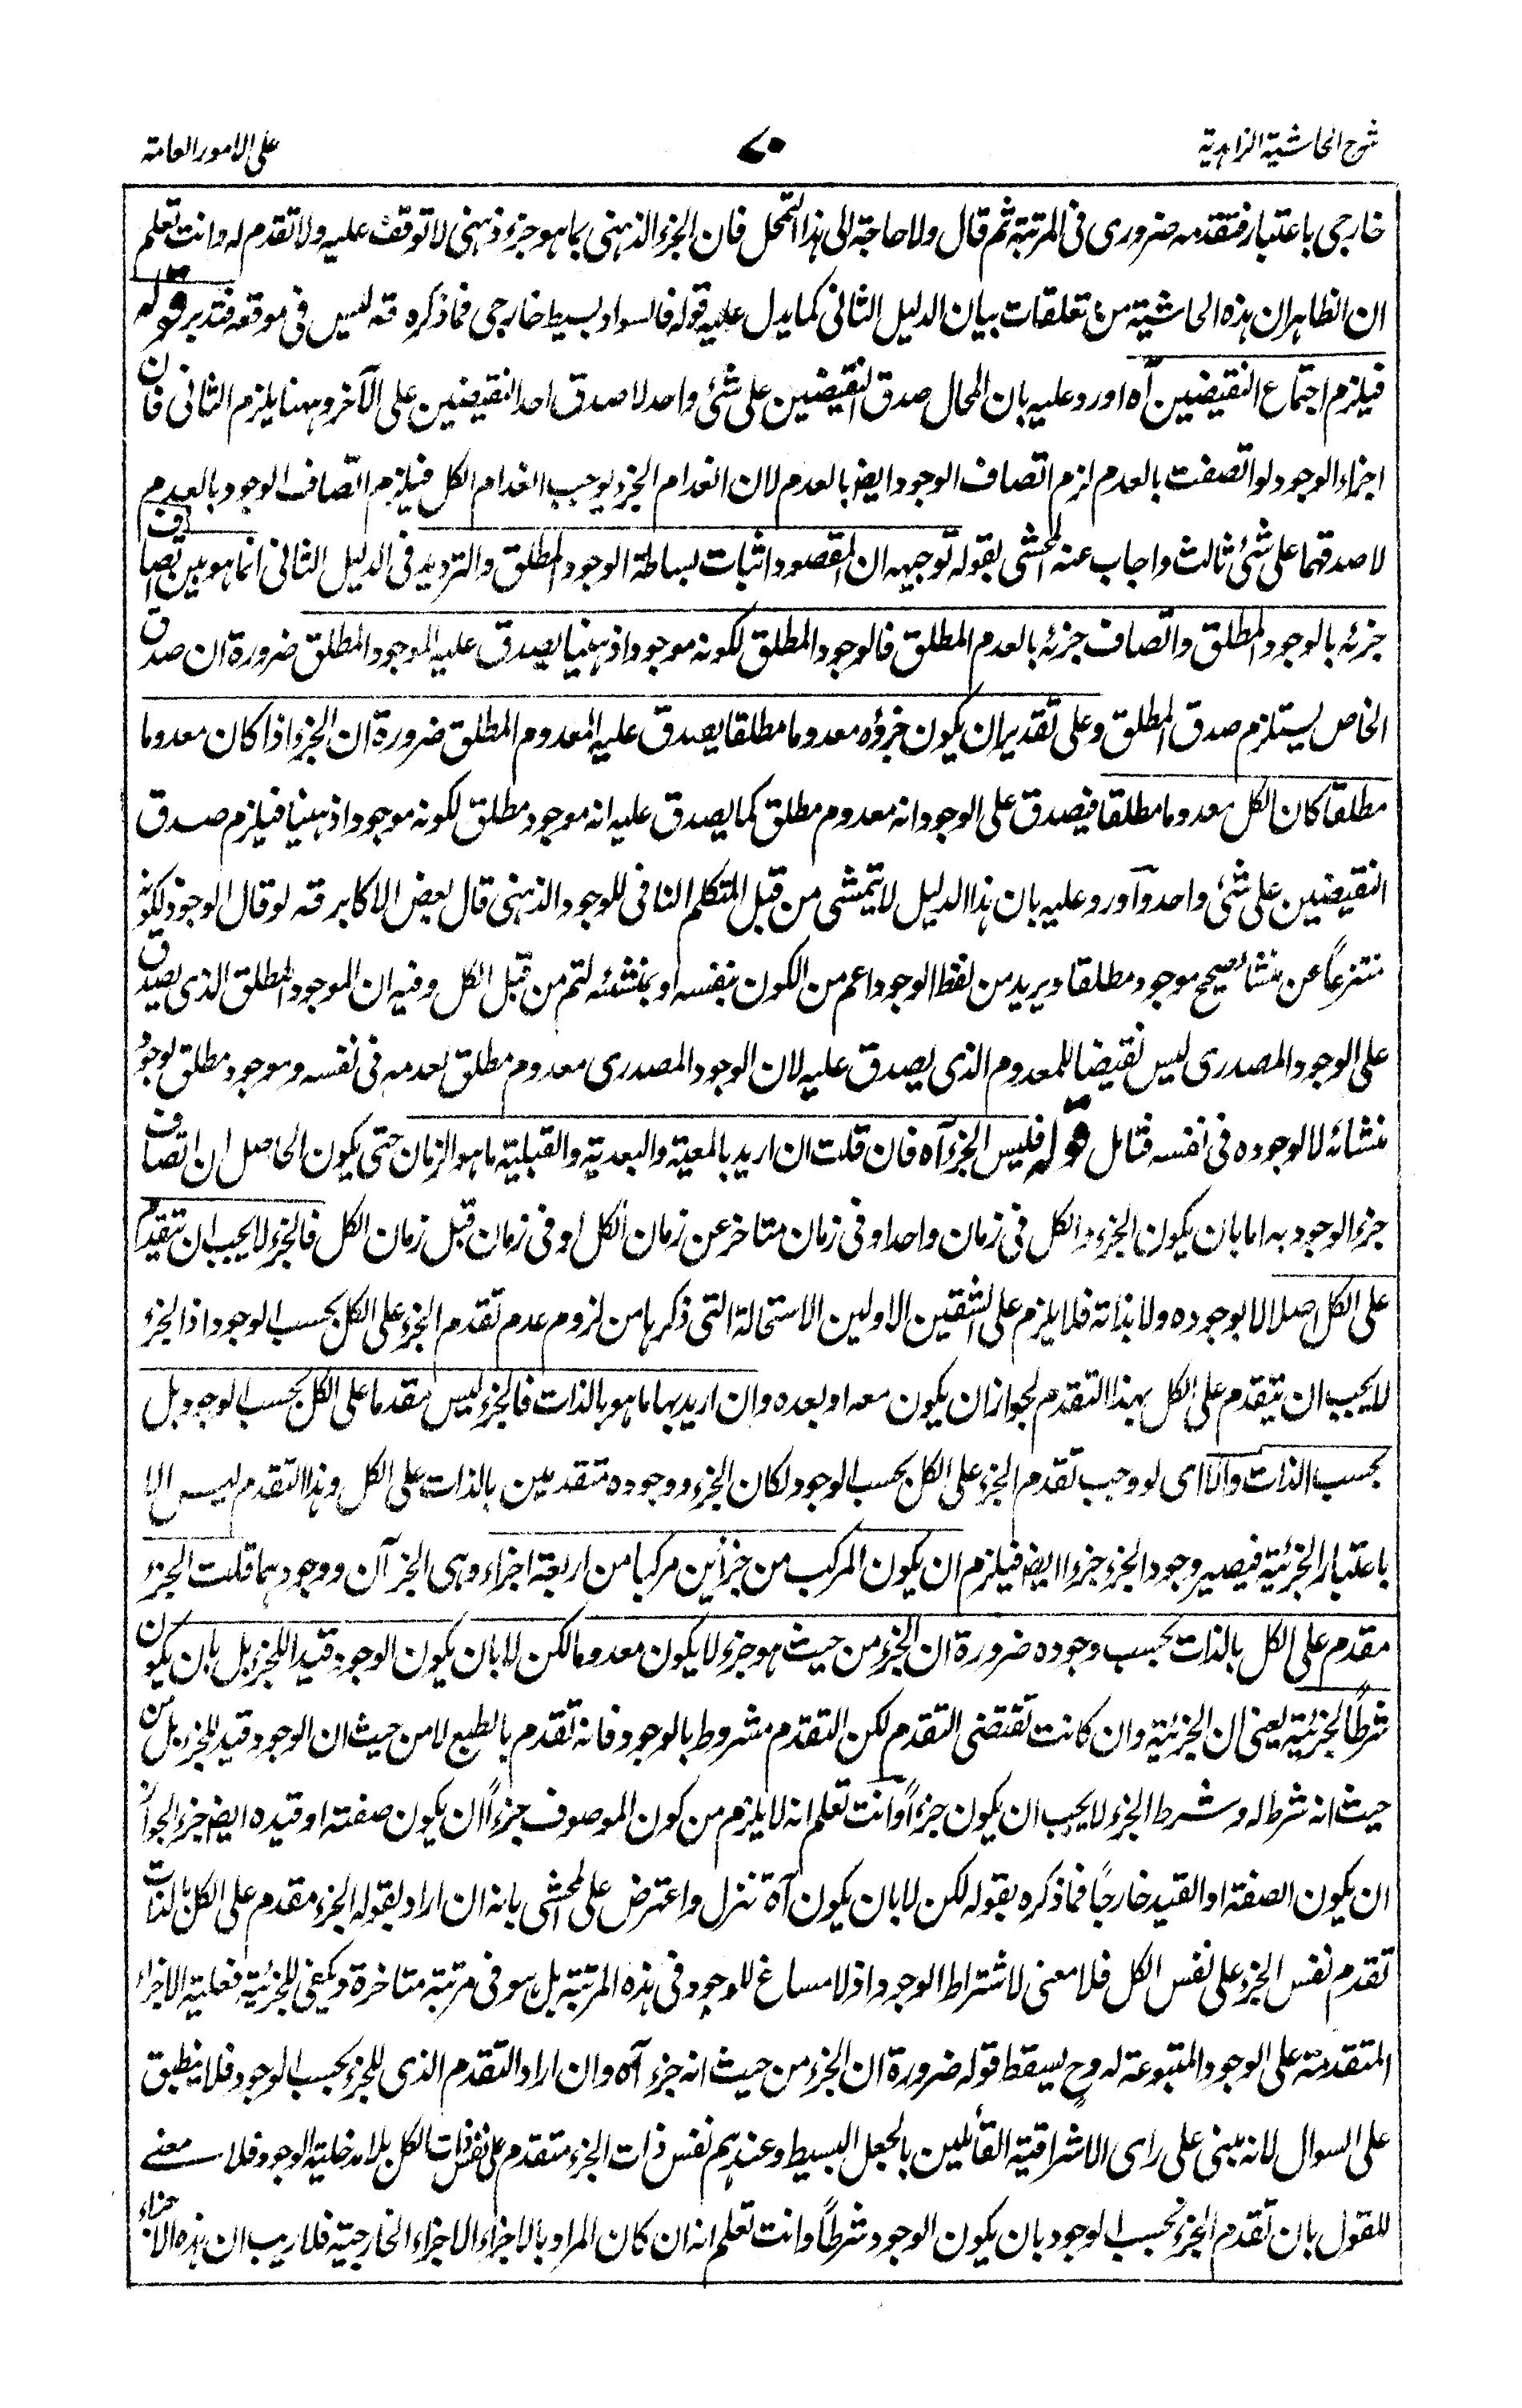 شرح الحاشية الزاهدية
٧٠
على الامور العامة
خارجى باعتبار فتقدمه ضرورى فى المرتبة ثم قال ولا حاجة الى هذا التمحل فان الجزء الذهنى بما هو جزء ذهنى لا توقف عليه ولا تقدم له وانت تعلم
ان الظاهر ان هذه الحاشية من تعلقات بيان الدليل الثانى كما يدل عليه قوله فالسواد بسيط خارجى فما ذكره قه ليس فى موقعه فتدبر قوله
فيلزم اجتماع النقيضين آه اورد عليه بان المحال صدق النقيضين على شئ واحد لا صدق احد النقيضين على الآخر وههنا يلزم الثانى فان
اجزاء الوجود لو اتصفت بالعدم لزم اتصاف الوجود ايض بالعدم لان انعدام الجزء يوجب انعدام الكل فيلزم اتصاف الوجود بالعدم
لا صدقهما على شئ ثالث واجاب عنه المحشى بقوله توجيهه ان المقصود اثبات بساطة الوجود المطلق والترديد فى الدليل الثانى انما هو بين اتصاف
جزئه بالوجود المطلق واتصاف جزئه بالعدم المطلق فالوجود المطلق لكونه موجودا ذهنيا يصدق عليه الموجود المطلق ضرورة ان صدق
الخاص يستلزم صدق المطلق وعلى تقدير ان يكون جزؤه معدوما مطلقا يصدق عليه المعدوم المطلق ضرورة ان الجزء اذا كان معدوما
مطلقا كان الكل معدوما مطلقا فيصدق على الوجود انه معدوم مطلق كما يصدق عليه انه موجود مطلق لكونه موجودا ذهنيا فيلزم صدق
النقيضين على شئ واحد وآورد عليه بان هذا الدليل لا يتمشى من قبل المتكلم النافى للوجود الذهنى قال بعض الاكابر قه لو قال الوجود لكونه
منتزعاً عن منشاء صحيح موجود مطلقا ويريد من لفظ الوجود اعم من الكون بنفسه او بمنشئه لتم من قبل الكل وفيه ان الموجود المطلق الذى يصدق
على الوجود المصدرى ليس نقيضا للمعدوم الذى يصدق عليه لان الوجود المصدرى معدوم مطلق بعدمه فى نفسه وموجود مطلق بوجود
منشائه لا لوجوده فى نفسه فتامل قوله فليس الجزء آه فان قلت ان اريد بالمعية والبعدية والقبلية ما هو الزمان حتى يكون الحاصل ان اتصاف
جزء الوجود به اما بان يكون الجزء والكل فى زمان واحد او فى زمان متاخر عن زمان الكل او فى زمان قبل زمان الكل فالجزء لا يجب ان يتقدم
على الكل اصلا لا بوجوده ولا بذاته فلا يلزم على الشقين الاولين الاستحالة التى ذكرها من لزوم عدم تقدم الجزء على الكل بحسب الوجود اذ الجزء
لا يجب ان يتقدم على الكل بهذا التقدم لجواز ان يكون معه او بعده وان اريد بها ما هو بالذات فالجزء ليس مقدما على الكل بحسب الوجود بل
بحسب الذات والا اى لو وجب تقدم الجزء على الكل بحسب الوجود لكان الجزء ووجوده متقدمين بالذات على الكل وهذا التقدم ليس الا
باعتبار الجزئية فيصير وجود الجزء جزءا ايض فيلزم ان يكون المركب من جزأين مركبا من اربعة اجزاء وهى الجزءآن ووجودهما قلت الجزء
مقدم على الكل بالذات بحسب وجوده ضرورة ان الجزء من حيث هو جزء لا يكون معدوما لكن لا بان يكون الوجود قيدا للجزء بل بان يكون
شرطاً لجزئيته يعنى ان الجزئية وان كانت تقتضى التقدم لكن التقدم مشروط بالوجود فانه تقدم بالطبع لا من حيث ان الوجود قيد للجزء بل من
حيث انه شرط له وشرط الجزء لا يجب ان يكون جزءاً وآنت تعلم انه لا يلزم من كون الموصوف جزءاً ان يكون صفته او قيده ايض جزء الجواز
ان يكون الصفة او القيد خارجاً فما ذكره بقوله لكن لا بان يكون آه تنزل واعترض على المحشى بانه ان اراد بقوله الجزء مقدم على الكل بالذات
تقدم نفس الجزء على نفس الكل فلا معنى لاشتراط الوجود اذ لا مساغ للوجود فى هذه المرتبة بل هو فى مرتبة متاخرة ويكفى للجزئية فعلية الاجزاء
المتقدمة على الوجود المتبوعة له وح يسقط قوله ضرورة ان الجزء من حيث انه جزء آه وان اراد التقدم الذى للجزء بحسب الوجود فلا ينطبق
على السوال لانه مبنى على راى الاشراقية القائلين بالجعل البسيط وعندهم نفس ذات الجزء متقدم على نفس ذات الكل بلا مدخلية الوجود فلا معنے
للقول بان تقدم الجزء بحسب الوجود بان يكون الوجود شرطاً وانت تعلم انه ان كان المراد بالاجزاء الاجزاء الخارجية فلا ريب ان هذه الاجزاء